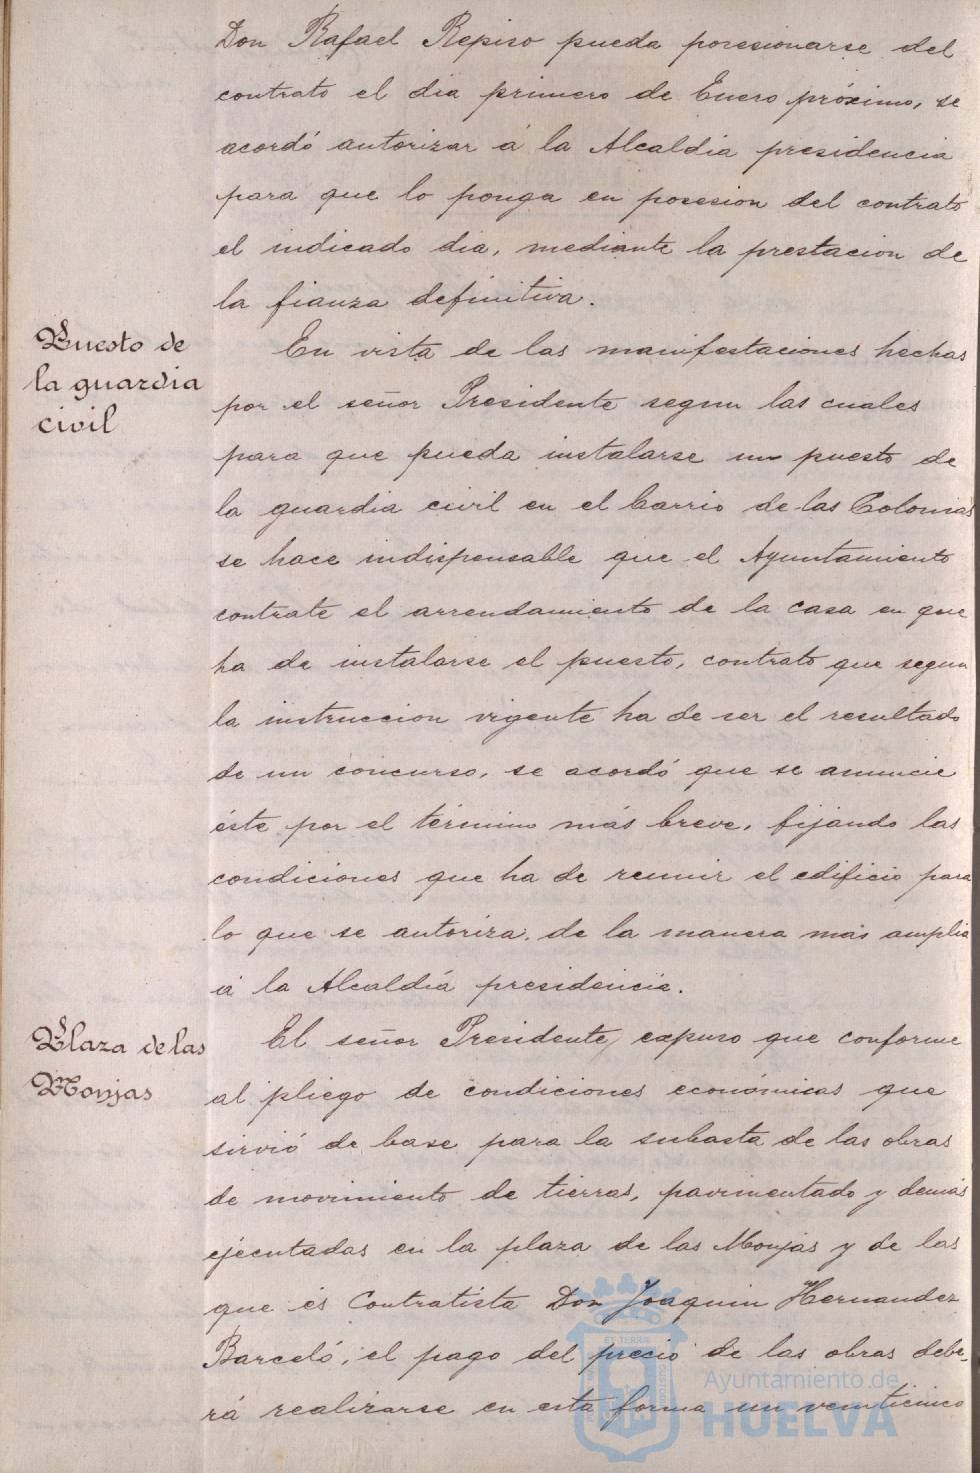 Don Rafael Repiso pueda posesionarse del
contrato el dia primero de Enero próximo, se
acordó autorizar á la Alcaldia presidencia
para que lo ponga en posesion del contrato
el indicado dia, mediante la prestacion de
la fianza definitiva.
Puesto de
la guardia
civil
En vista de las manifestaciones hechas
por el señor Presidente segun las cuales
para que pueda instalarse un puesto de
la guardia civil en el barrio de las Colonias
se hace indispensable que el Ayuntamiento
contrate el arrendamiento de la casa en que
ha de instalarse el puesto, contrato que segun
la instruccion vigente ha de ser el resultado
de un concurso, se acordó que se anuncie
éste por el término más breve, fijando las
condiciones que ha de reunir el edificio para
lo que se autoriza, de la manera mas amplia
á la Alcaldía presidencia.
Plaza de las
Monjas
El señor Presidente, expuso que conforme
al pliego de condiciones económicas que
sirvió de base para la subasta de las obras
de movimiento de tierras, pavimentado y demás
ejecutadas en la plaza de las Monjas y de las
que es Contratista Don Joaquin Hernandez
Barceló, el pago del precio de las obras debe-
rá realizarse en esta forma un veinticinco
Ayuntamiento de
HUELVA